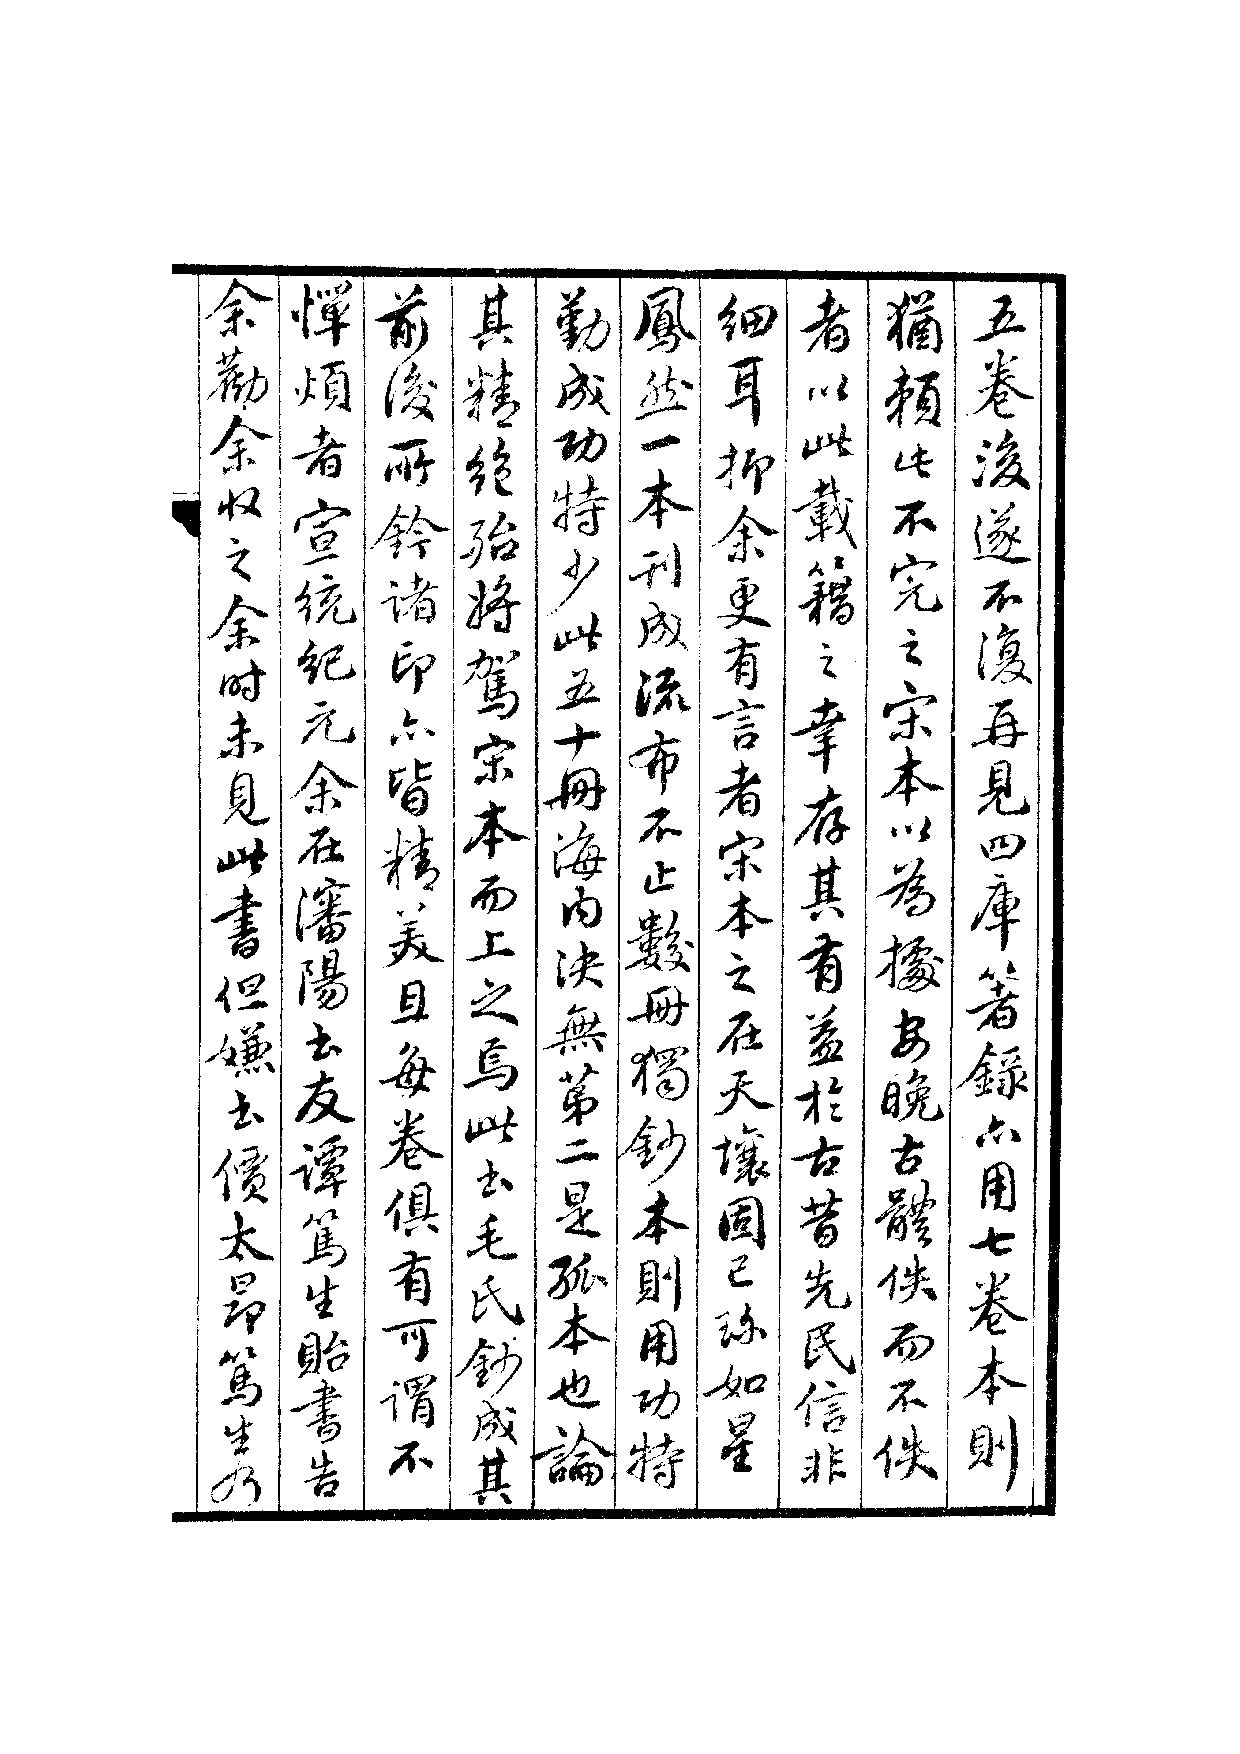 五卷後遂不復再見四庫箸錄亦用七卷本則
猶賴此不完之宋本以為據安晚古體佚而不佚
者以此載籍之幸存其有益於古昔先民信非
細耳抑余更有言者宋本之在天壤固已珍如星
鳳然一本刊成流布不止數冊獨鈔本則用功特
勤成功特少此五十冊海內決無第二是孤本也論
其精絕殆將駕宋本而上之焉此书毛氏鈔成其
前後所鈐諸印亦皆精美且每卷俱有可謂不
憚煩者宣統紀元余在瀋陽书友譚篤生貽書告
余勸余收之余时未見此書但嫌书價太昂篤生乃